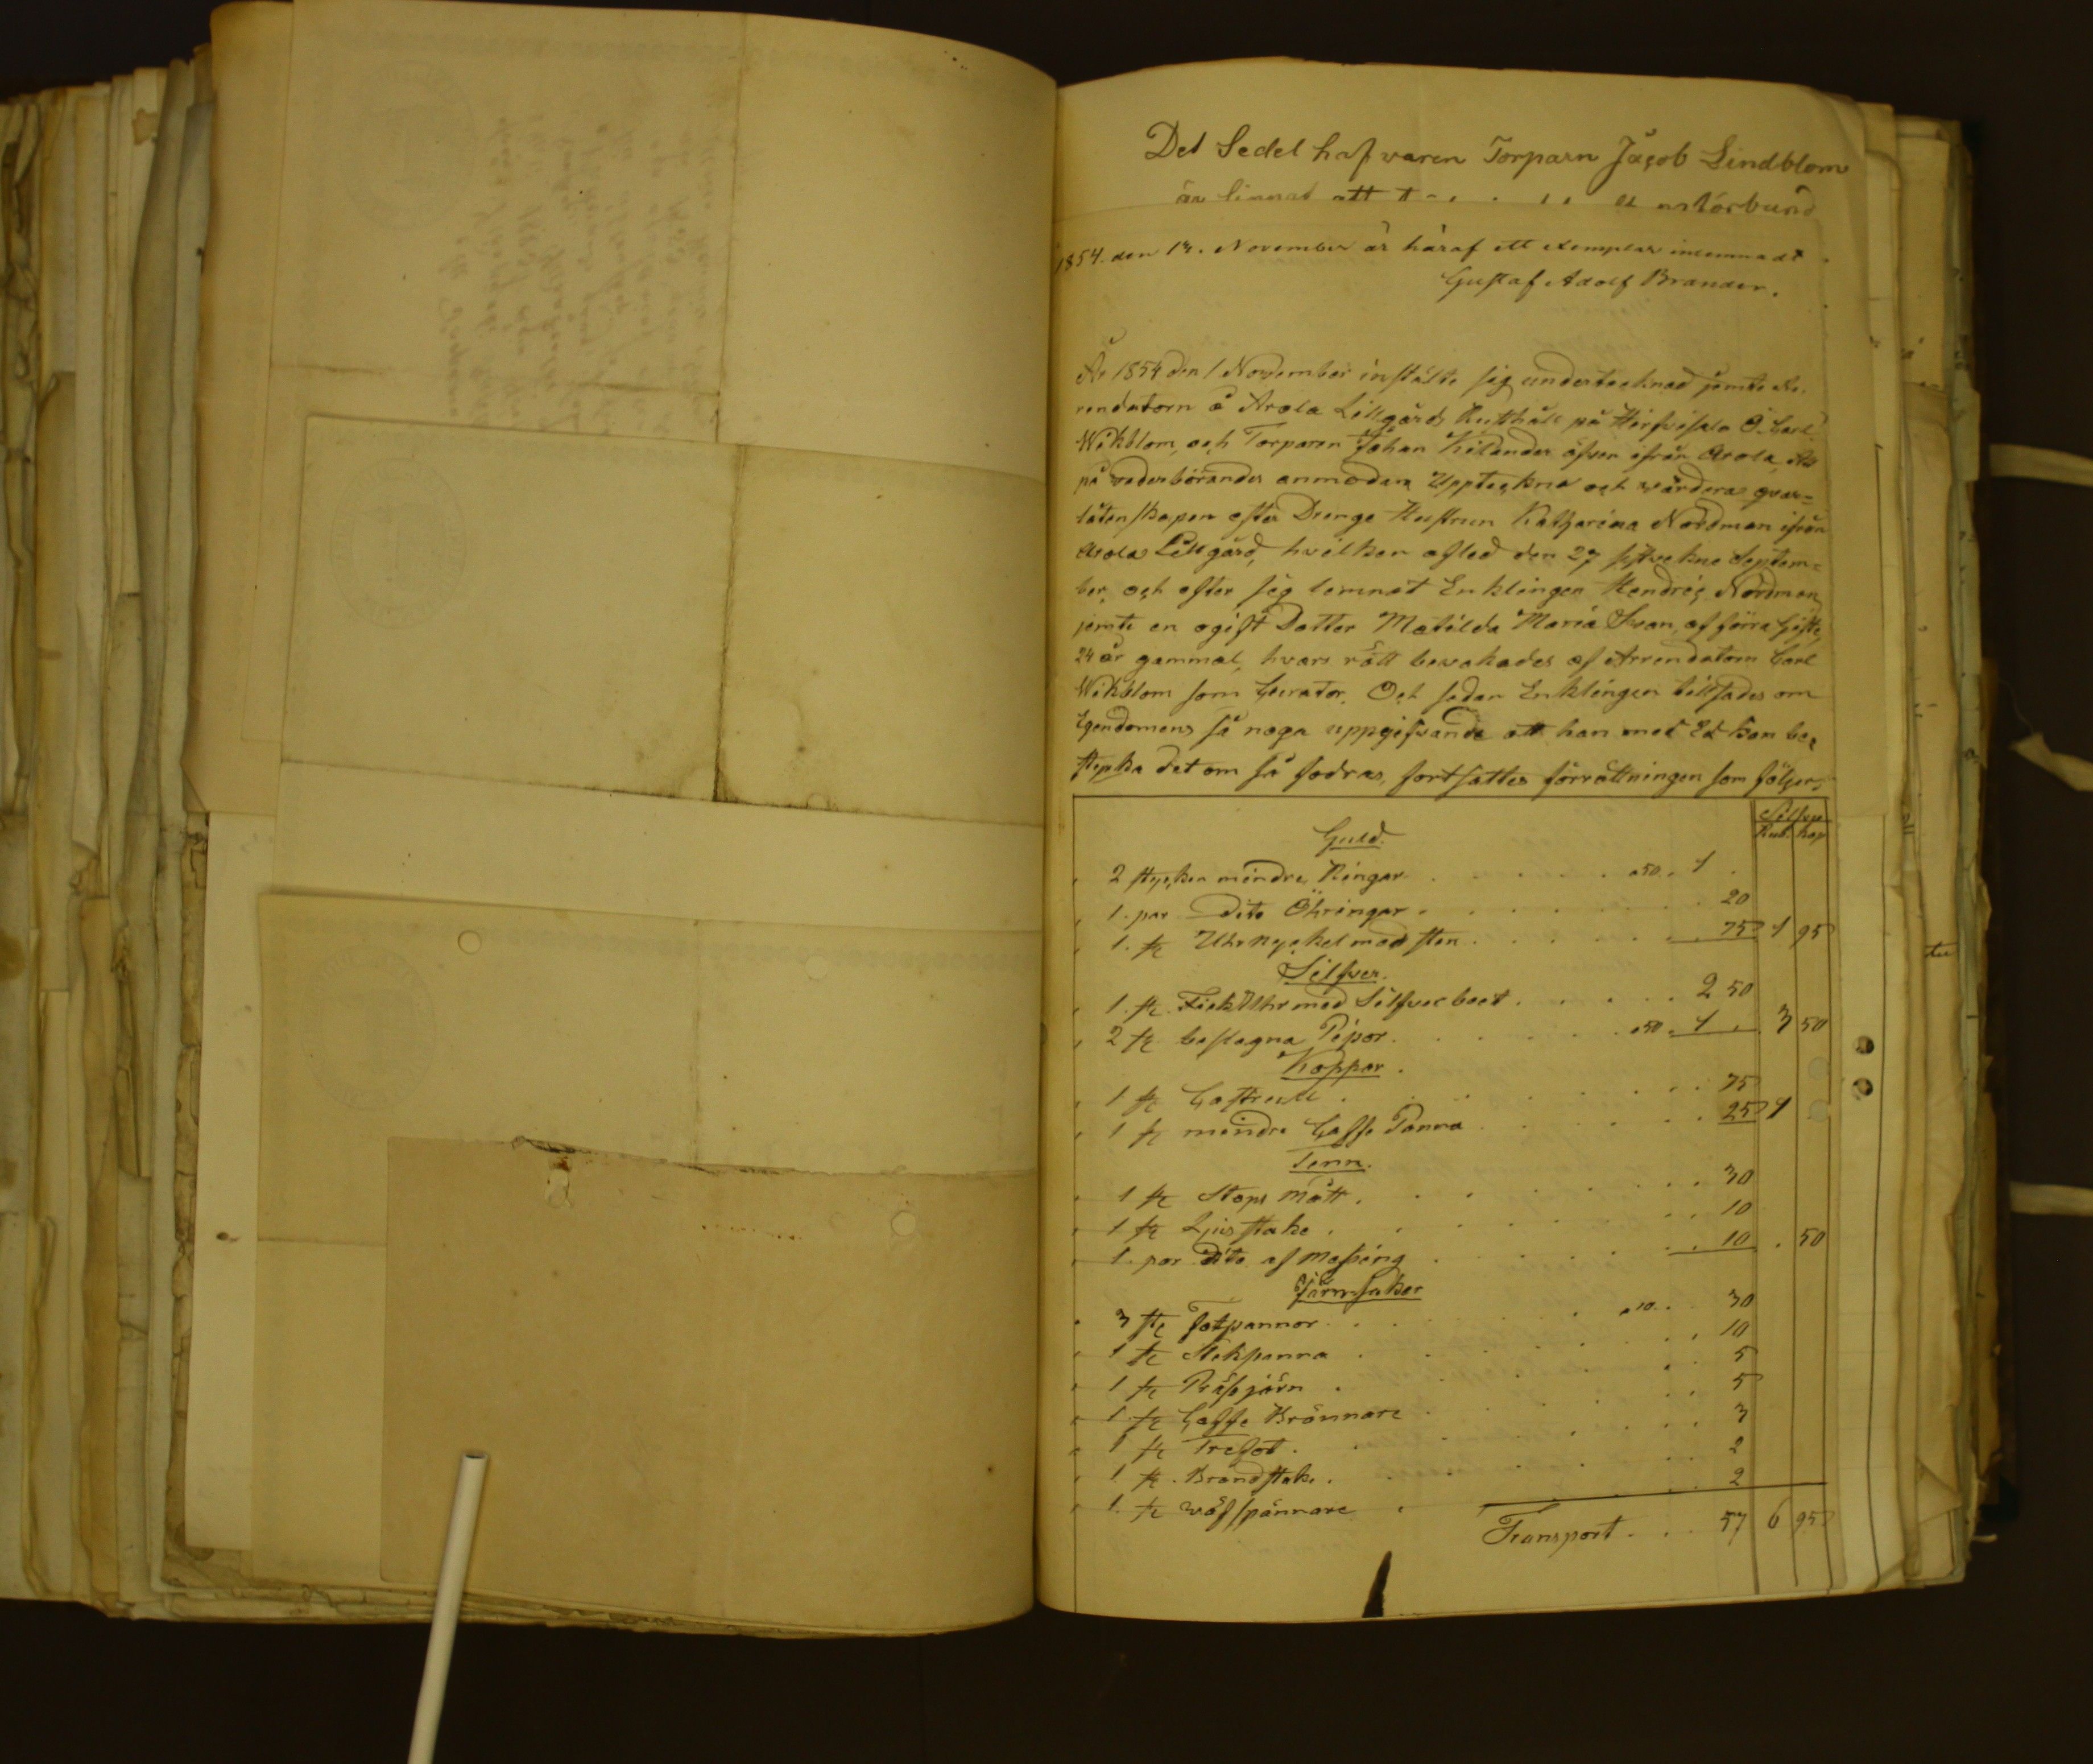 Det Sedel hafvaren Torparn Jacob Lindblom
är linnat att
1854. den 13. November är häraf ett exemplar inlemnadt.
Gustaf Adolf Brander.
År 1854 den 1 November instälte sig undertecknad jemte Ar-
rendatorn å Arola Lillgårds Rusthåll på Hirfvisalo Ö. Carl
Wikblom, och Torparen Johan Kilander äfven ifrån Arola, Att
på vederbörandes anmodan Uppteckna och wärdera qvar=
låtenskapen efter Drenge Hustrun Katharina Nordman ifrån
Arola Lillgård, hvilken afled den 27 sistvekne Septem=
ber, och efter sig lemnat Enklingen Hendric Nordman,
jemte en ogift Dotter Matilda Maria Svan, af förra Gifte,
24 år gammal, hvars rätt bevakades af Arrendatorn Carl
Wikblom som Curator. Och sedan Enklingen tillsades om
Egendomens så noga uppgifvande att han med Ed kan be-
styrka det om så fodras, fortsattes förrättningen som följer;
Silfver
Rub. Kop
Guld.
2 stycken mindre Ringar a 50. 1
1. par Dito Öhringar 20
1. st Uhrnyckel med sten 75 1 95
Silfver.
1. st. Fick Uhr med Silfver boet 2 50
2 st beslagna Pipor a 50. 1 3 50
Koppar.
1 st Castrull 75
1 st mindre Caffe Panna 25 1
Tenn.
1 st Stops Mått 30
1 st Ljusstake 10
1. par Dito af Messing 10 50
Järnsaker
3 st Fotpannor a 10. 30
1 st Stekpanna 10
1 st Präsjärn 5
1. st Caffe Brännare 5
1 st Trefot 3
1 st. Brandstake 2
1. st wäfspännare 2
Transport 57 6 95